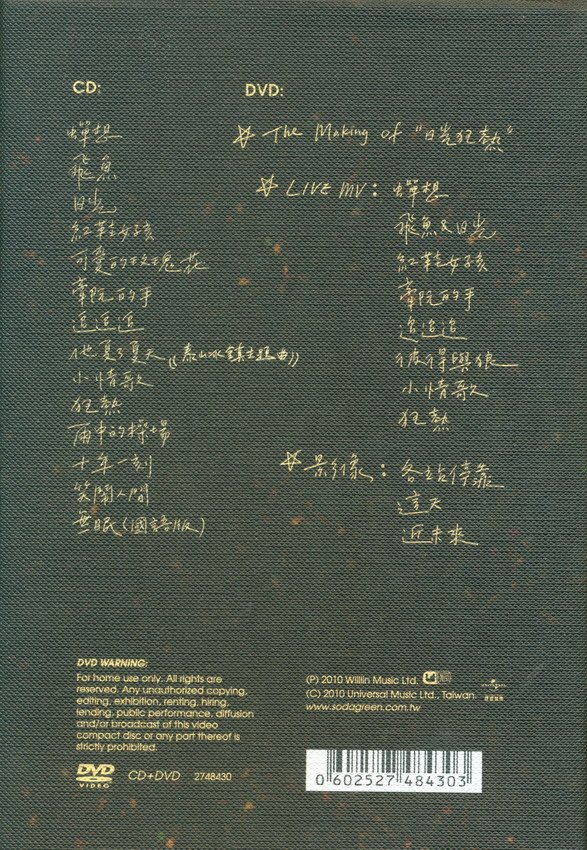 CD:
蟬想
飛魚
日光
紅鞋女孩
可愛的玫瑰花
牽阮的手
追追追
他夏了夏天(泰山冰鎮主題曲)
小情歌
狂熱
雨中的操場
十年一刻
笑鬧人間
無眠(國語版)
DVD:
The Making of "日光狂熱"
LIVE MV: 蟬想
飛魚&日光
紅鞋女孩
牽阮的手
追追追
彼得與狼
小情歌
狂熱
影像: 各站停靠
這天
近未來
DVD WARNING:
For home use only. All rights are
reserved. Any unauthorized copying,
editing, exhibition, renting, hiring,
lending, public performance, diffusion
and/or broadcast of this video
compact disc or any part thereof is
strictly prohibited.
DVD VIDEO CD+DVD 2748430
(P) 2010 Willlin Music Ltd.
(C) 2010 Universal Music Ltd., Taiwan.
www.sodagreen.com.tw
0 602527 484303